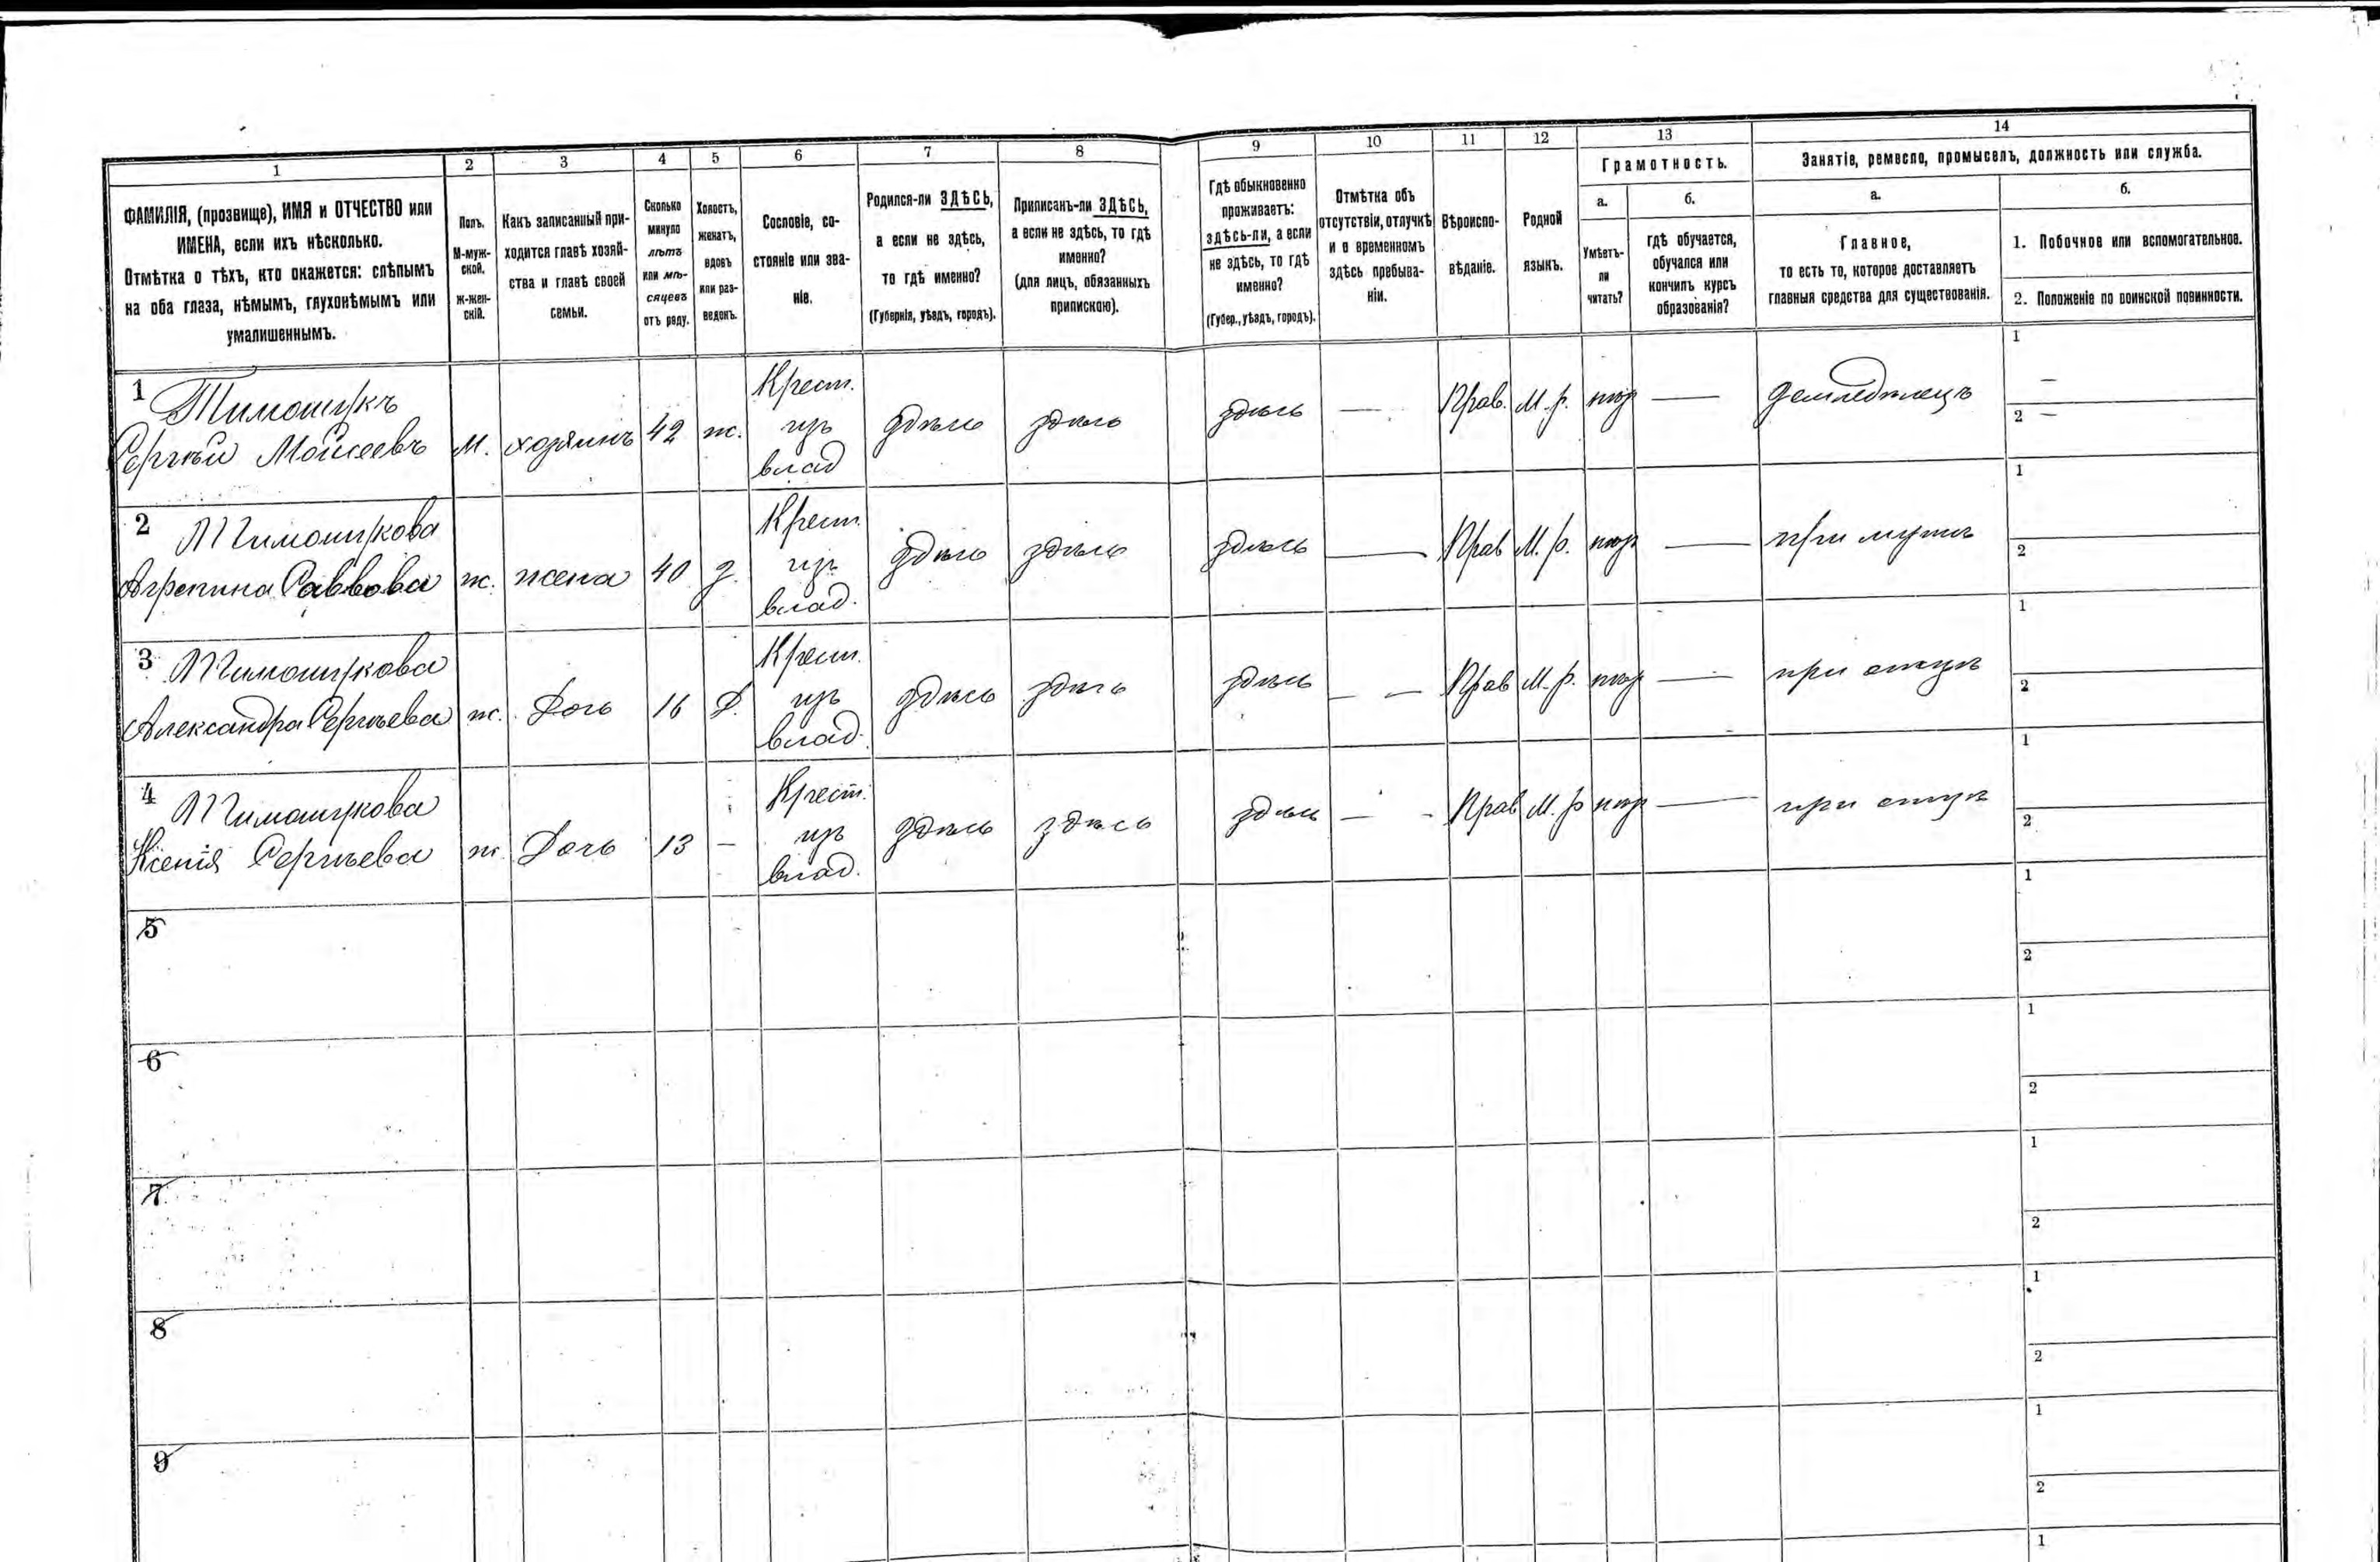 1 2 3 4 5 6 7 8 9 10 11 12 13 14
ФАМИЛІЯ, (прозвище), ИМЯ и ОТЧЕСТВО или
ИМЕНА, если ихъ нѣсколько.
Отмѣтка о тѣхъ, кто окажется: слѣпымъ
на оба глаза, нѣмымъ, глухонѣмымъ или
умалишеннымъ.
Полъ.
М-муж-
ской.
ж-жен-
скій.
Какъ записанный при-
ходится главѣ хозяй-
ства и главѣ своей
семьи.
Сколько
минуло
лѣтъ
или мѣ-
сяцевъ
отъ роду.
Холостъ,
женатъ,
вдовъ
или раз-
веденъ.
Сословіе, со-
стояніе или зва-
ніе.
Родился-ли ЗДѢСЬ,
а если не здѣсь,
то гдѣ именно?
(Губернія, уѣздъ, городъ).
Приписанъ-ли ЗДѢСЬ,
а если не здѣсь, то гдѣ
именно?
(для лицъ, обязанныхъ
припискою).
Гдѣ обыкновенно
проживаетъ:
здѣсь-ли, а если
не здѣсь, то гдѣ
именно?
(Губер., уѣздъ, городъ).
Отмѣтка объ
отсутствіи, отлучкѣ
и о временномъ
здѣсь пребыва-
ніи.
Вѣроиспо-
вѣданіе.
Родной
языкъ.
Грамотность.
а.
Умѣетъ-
ли
читать?
б.
гдѣ обучается,
обучался или
кончилъ курсъ
образованія?
Занятіе, ремесло, промыселъ, должность или служба.
а.
Главное,
то есть то, которое доставляетъ
главныя средства для существованія.
б.
1. Побочное или вспомогательное.
2. Положеніе по воинской повинности.
1 Тимошукъ
Сергѣй Моисеевъ М. хозяинъ 42 ж. Крест.
из
влад здѣсь здѣсь здѣсь — Прав. М. р. — 1 —
2 —
2 Тимошукова
Агрепина Саввова ж. жена 40 Крест.
из
влад. здѣсь здѣсь здѣсь — Прав М. р. — при мужѣ 1
2
3 Тимошукова
Александра Сергѣева ж. Дочь 16 Д. Крест.
из
влад. здѣсь здѣсь здѣсь — — Прав М. р. — при отцѣ 1
2
4 Тимошукова
Ксенія Сергѣева ж. Дочь 13 — Крест.
из
влад. здѣсь здѣсь здѣсь — - Прав М. р — при отцѣ 1
2
5 1
2
6 1
2
7 1
2
8 1
2
9 1
2
1